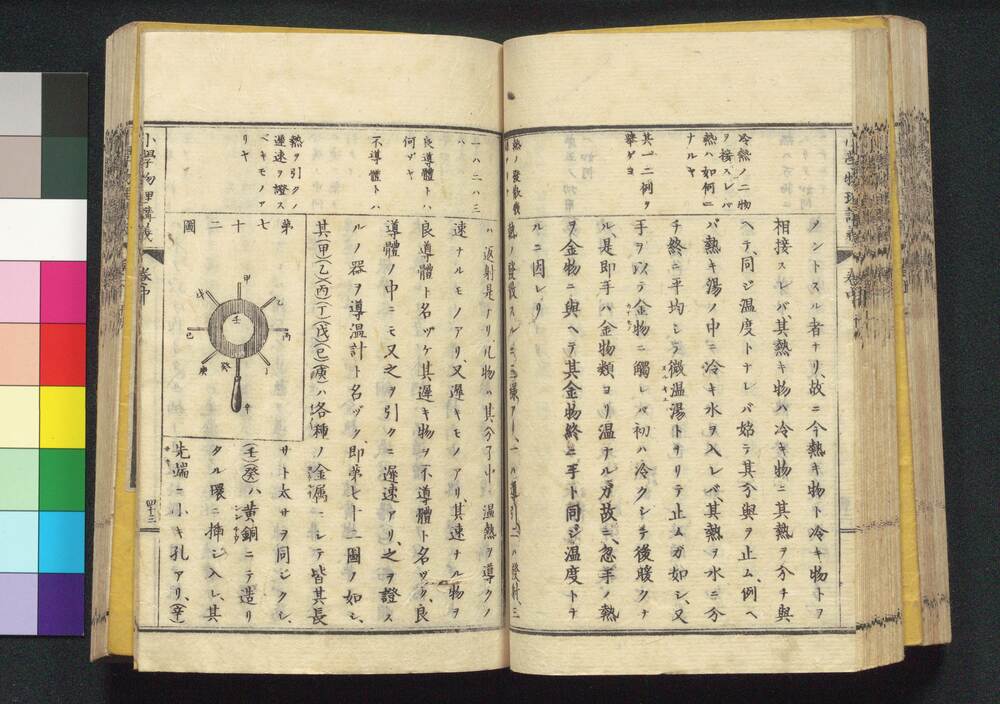 冷熱ノ二物
ヲ接スレバ
熱ハ如何ニ
ナルヤ
其一二例ヲ
擧ゲヨ
ノントスル者ナリ、故ニ今熱キ物ト冷キ物トヲ
相接スレバ、其熱キ物ハ冷キ物ニ其熱ヲ分チ與
ヘテ、同ジ温度トナレバ始テ其分與ヲ止ム、例ヘ
バ熱キ湯ノ中ニ冷キ水ヲ入レバ其熱ヲ水ニ分
チ終ニ平均シテ微温湯トナリテ止ムガ如シ、又
手ヲ以テ金物ニ觸レバ初ハ冷クシテ後暖クナ
ル、是即手ハ金物類ヨリ温ナルガ故ニ、忽手ノ熱
ヲ金物ニ與ヘテ其金物終ニ手ト同ジ温度トナ
ルニ因レリ
一ハ二ハ三
ハ
良導體トハ
何ゾヤ
不導體トハ
熱ヲ引クノ
遲速ヲ證ス
ベキモノア
リヤ
ハ返射是ナリ、凡物ハ其分子中ニ温熱ヲ導クノ
速ナルモノアリ、又遲キモノアリ、其速ナル物ヲ
良導體ト名ヅケ其遲キ物ヲ不導體ト名ヅク、良
導體ノ中ニモ又之ヲ引クニ遲速アリ、之ヲ證ス
ルノ器ヲ導温計ト名ヅク、即第七十二圖ノ如シ、
其(甲)(乙)(丙)(丁)(戊)(己)(庚)ハ各種ノ金属ニシテ皆其長
サト太サヲ同ジクシ、
(壬)(癸)ハ黄銅ニテ造リ
タル環ニ挿シ入レ其
先端ニ小キ孔アリ、(辛)
第七十二圖
甲
乙
丙
丁
戊
己
庚
壬
癸
辛
小學物理講義
四十三